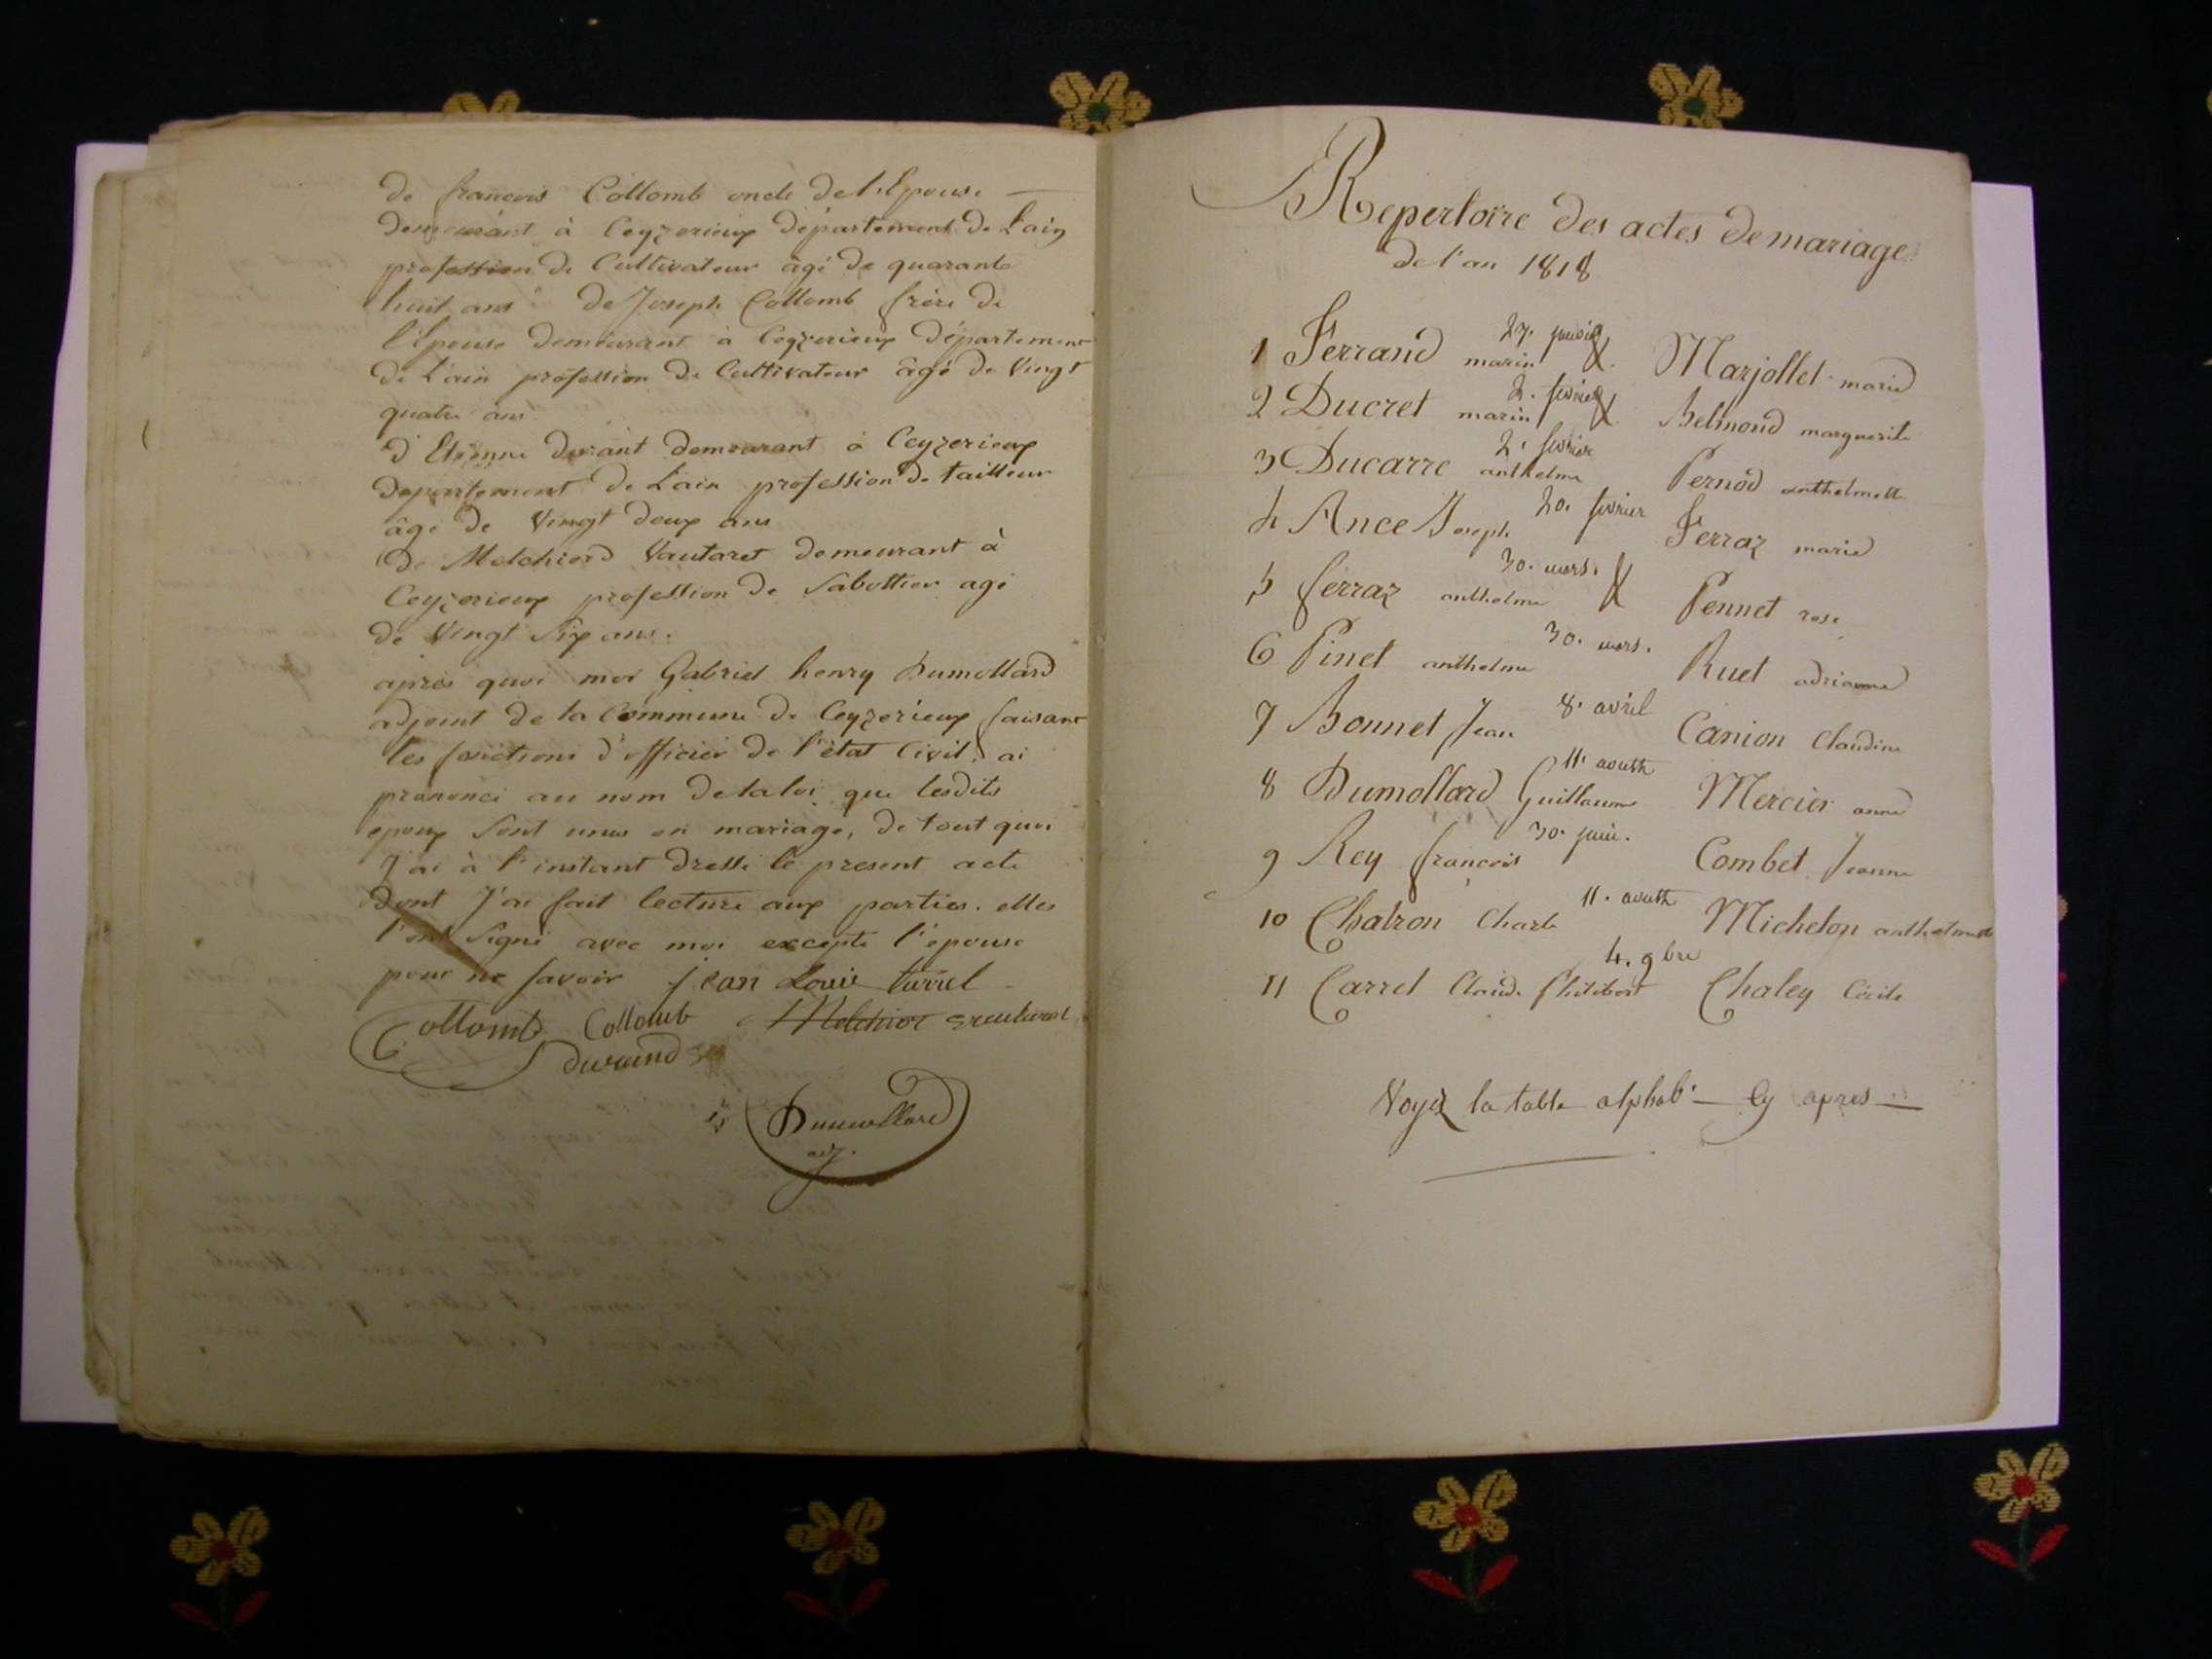 de francois Collomb oncle de l'Epouse
demeurant à Ceyzerieux département de L'ain
profession de Cultivateur âgé de quarante
huit ans de Joseph Collomb frère de
l'Epouse demeurant à Ceyzerieux Département
de L'ain profession de Cultivateur âgé de Vingt
quatre ans.
d'Etienne durant demeurant à Ceyzerieux
département de L'ain profession de tailleur
âgé de Vingt deux ans
de Melchiord Vautaret demeurant à
Ceyzerieux profession de Sabottier agé
de Vingt Six ans.
après quoi moi Gabriel henry Dumollard
adjoint de la Commune de Ceyzerieux faisant
les fonctions d'officier de l'état Civil, ai
prononcé au nom de la loi que lesdits
epoux Sont unis en mariage, de tout quoi
J'ai à l'instant dressé le present acte
dont J'ai fait lecture aux parties. elles
l'ont Signé avec moi excepté l'épouse
pour ne savoir jean Louis turrel
Collomb Collomb Melchior
durand
Dumollard
adj.
Repertoire des actes de mariage
de l'an 1818
27. janvier
1 Ferrand marin Marjollet marie
2. fevrier
2 Ducret marin Belmond marguerite
2. fevrier
3 Ducarre anthelme Pernod anthelmette
20. fevrier
4 Ance Joseph Ferraz marie
30. mars.
5 ferraz anthelme Pennet rose
30. mars.
6 Pinet anthelme Ruet adrianne
8. avril
7 Bonnet Jean Canion Claudine
11. aoust
8 Dumollard Guillaume Mercier anne
30. juin.
9 Rey francois Combet Jeanne
11. aoust
10 Chatron Charle Michelon anthelmette
4. 9bre
11 Carrel Claude Philibert Chaley Cécile
Voyez la table alphab. Cy apres